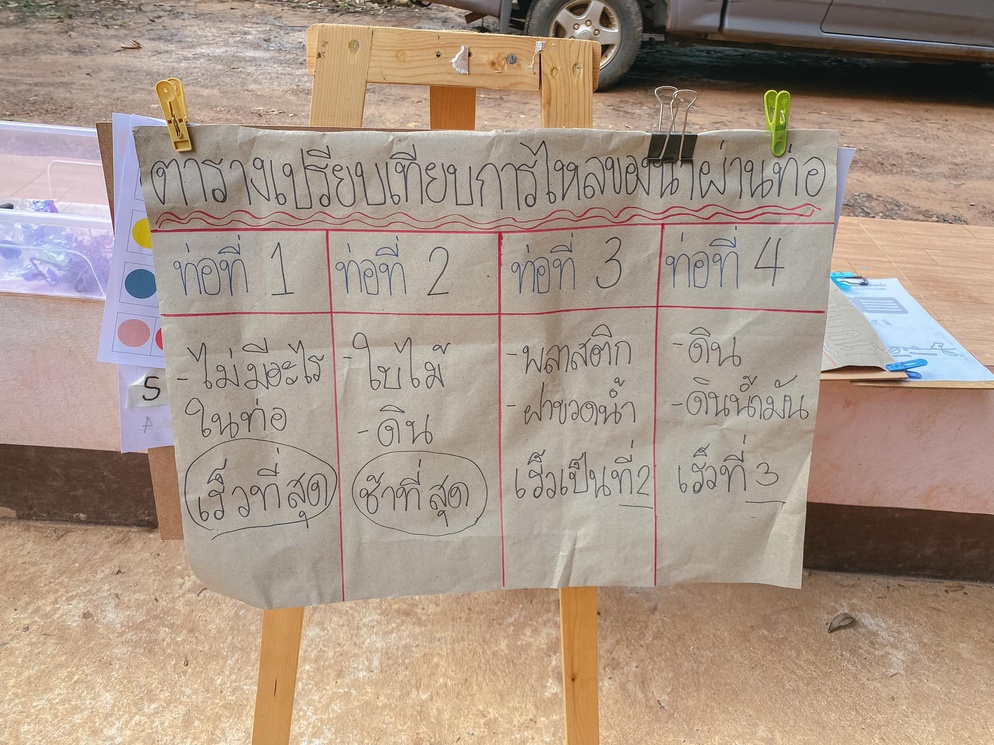 ตารางเปรียบเทียบการไหลของน้ำผ่านท่อ
ท่อที่ 1
ท่อที่ 2
ท่อที่ 3
ท่อที่ 4
-ไม่มีอะไร
ในท่อ
เร็วที่สุด
-ใบไม้
-ดิน
ช้าที่สุด
-พลาสติก
-ฝาขวดน้ำ
เร็วเป็นที่2
-ดิน
-ดินน้ำมัน
เร็วที่ 3
S